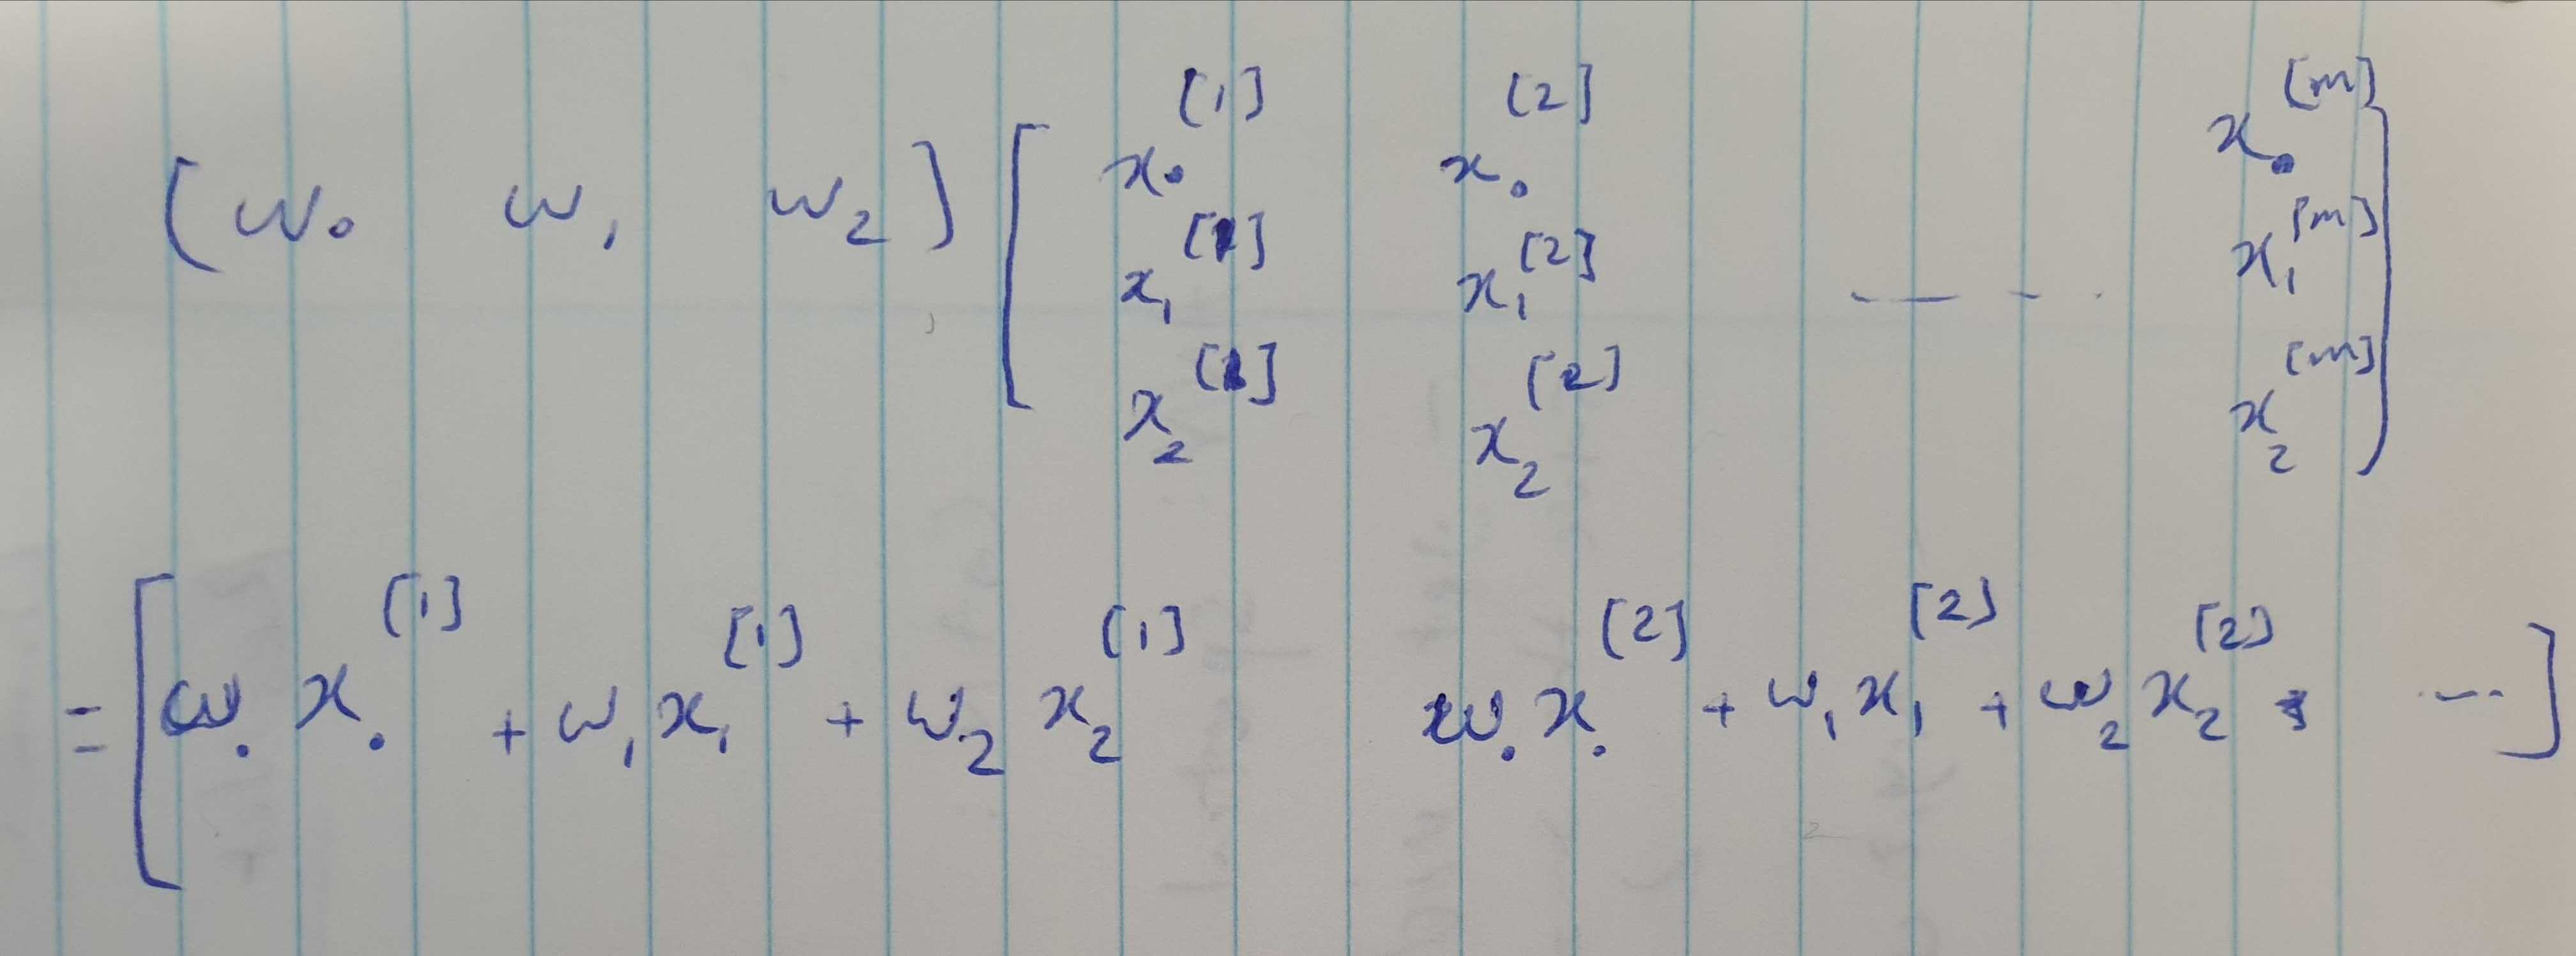 (w₀ w₁ w₂) [ x₀^[1] x₀^[2] x₀^[m]
x₁^[1] x₁^[2] - - - . x₁^[m]
x₂^[1] x₂^[2] x₂^[m] ]
= [ w₀ x₀^[1] + w₁ x₁^[1] + w₂ x₂^[1] w₀ x₀^[2] + w₁ x₁^[2] + w₂ x₂^[2] ---- ]